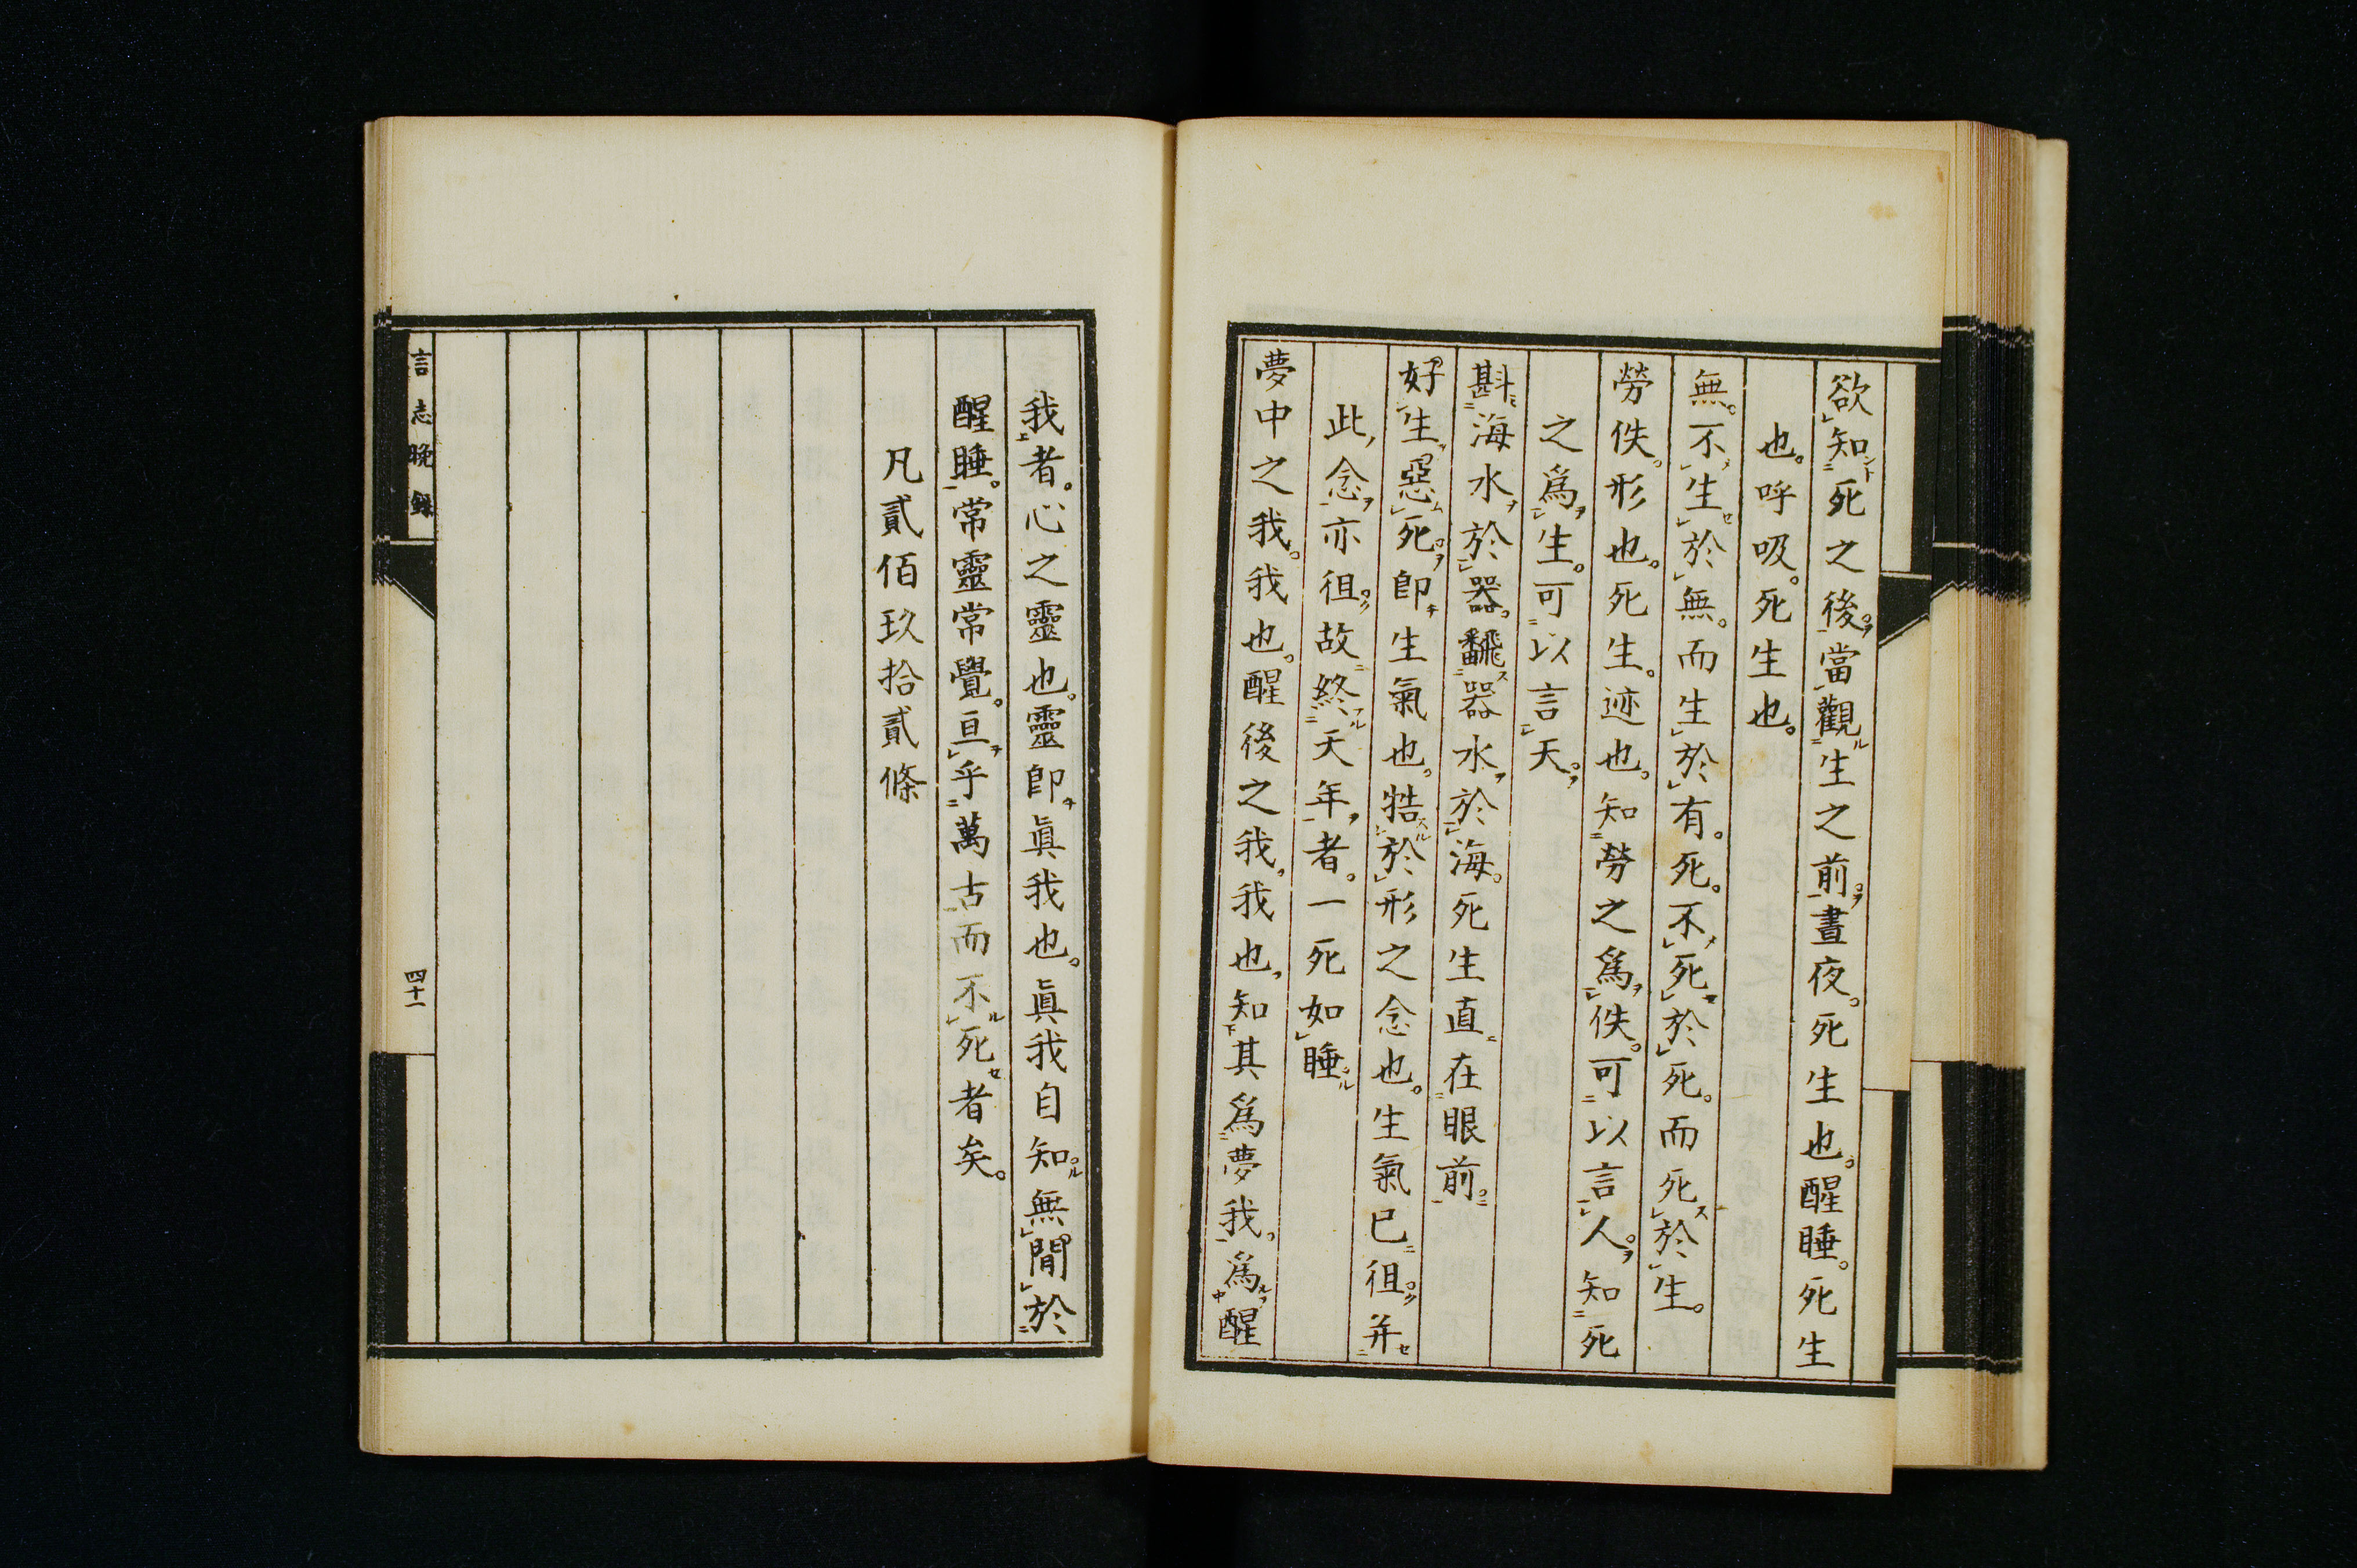 欲知死之後。當觀生之前。晝夜。死生也。醒睡。死生
也。呼吸。死生也。
無。不生於無。而生於有。死。不死於死。而死於生。
勞佚。形也。死生。迹也。知勞之爲佚。可以言人。知死
之爲生。可以言天。
斟海水於器。翻器水於海。死生直在眼前。
好生惡死。卽生氣也。牿於形之念也。生氣已徂。并
此念亦徂。故終天年者。一死如睡。
夢中之我。我也。醒後之我。我也。知其爲夢我。爲醒
我者。心之靈也。靈卽眞我也。眞我自知無間於
醒睡。常靈常覺。亘乎萬古而不死者矣。
凡貳佰玖拾貳條
言志晚錄
四十一